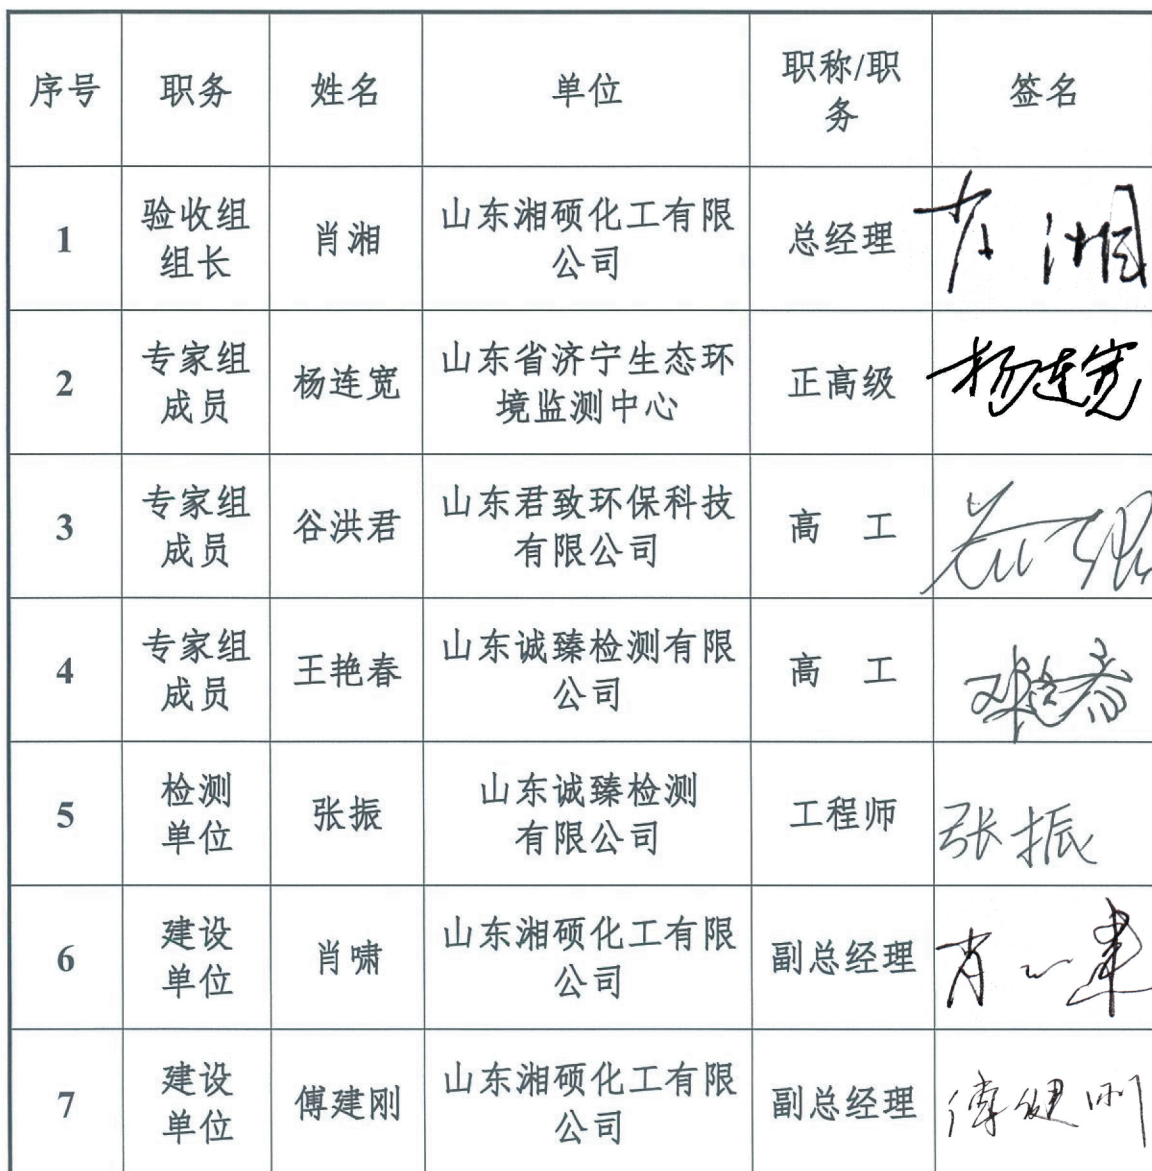 序号 职务 姓名 单位 职称/职
务 签名
1 验收组
组长 肖湘 山东湘硕化工有限
公司 总经理 肖湘
2 专家组
成员 杨连宽 山东省济宁生态环
境监测中心 正高级 杨连宽
3 专家组
成员 谷洪君 山东君致环保科技
有限公司 高 工
4 专家组
成员 王艳春 山东诚臻检测有限
公司 高 工 王艳春
5 检测
单位 张振 山东诚臻检测
有限公司 工程师 张振
6 建设
单位 肖啸 山东湘硕化工有限
公司 副总经理 肖啸
7 建设
单位 傅建刚 山东湘硕化工有限
公司 副总经理 傅建刚